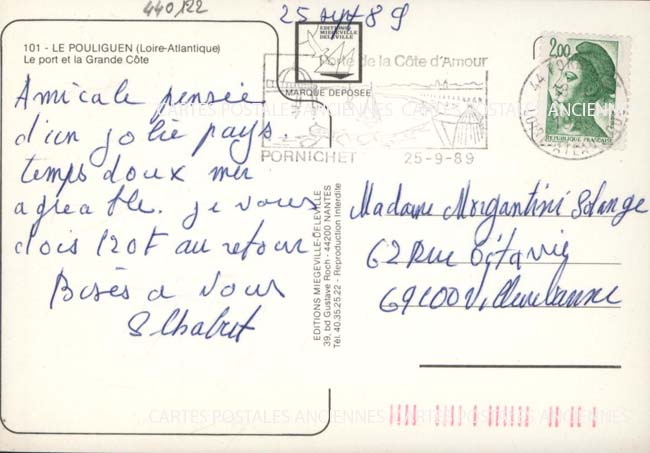 440122
25 sept 89
101 - LE POULIGUEN (Loire-Atlantique)
Le port et la Grande Côte
Amicale pensée
d'un jolie pays.
temps doux mer
agreable. je vous
dois 120F au retour
Bises a vous
EDITIONS
MIEGEVILLE
DELEVILLE
MARQUE DEPOSEE
Porte de la Côte d'Amour
PORNICHET 25-9-89
2,00
REPUBLIQUE FRANÇAISE
44
EDITIONS MIEGEVILLE-DELEVILLE
39, bd Gustave Roch - 44200 NANTES
Tél. 40.35.25.22 - Reproduction Interdite
Madame Morgantini Solange
62 Rue Octavie
69100 Villeurbanne
CARTES POSTALES ANCIENNES
CARTES POSTALES ANCIENNES